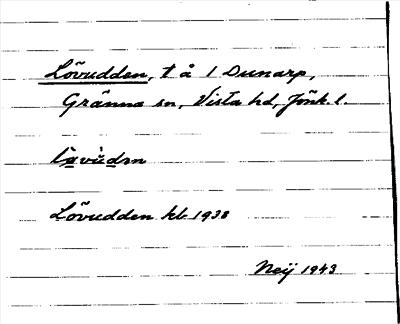 Lövudden, t å 1 Dunarp,
Gränna sn, Vista hd, Jönk. l.
Lövudden kb 1938
Neij 1943